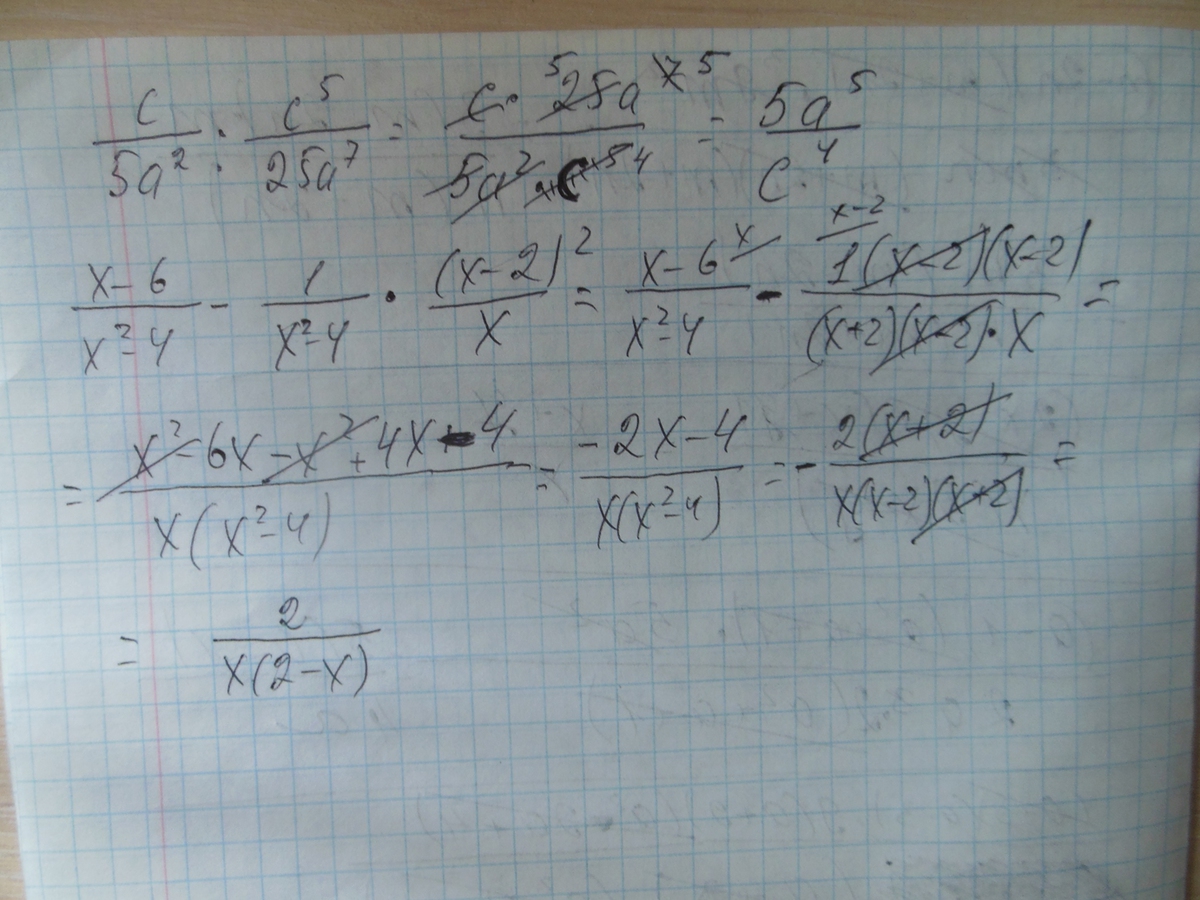 c/5a² : c⁵/25a⁷ = c · 25a⁷ ⁵ ⁵/5a² · c⁵ ⁴ = 5a⁵/c⁴
x-6/x²-4 - 1/x²-4 · (x-2)²/x = x-6 ˣ/x²-4 - 1(x-2)(x-2) ˣ⁻²/(x+2)(x-2)·x =
= x²-6x-x²+4x-4/x(x²-4) = -2x-4/x(x²-4) = - 2(x+2)/x(x-2)(x+2) =
= 2/x(2-x)